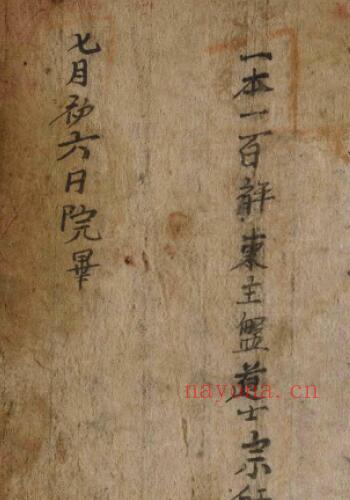 一本一百 東主盤道士宗
七月初六日院畢
nayona.cn